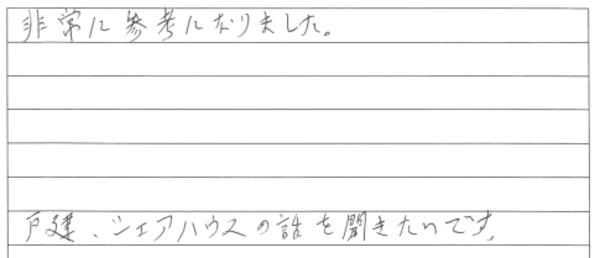 非常に参考になりました。
戸建、シェアハウスの話を聞きたいです。